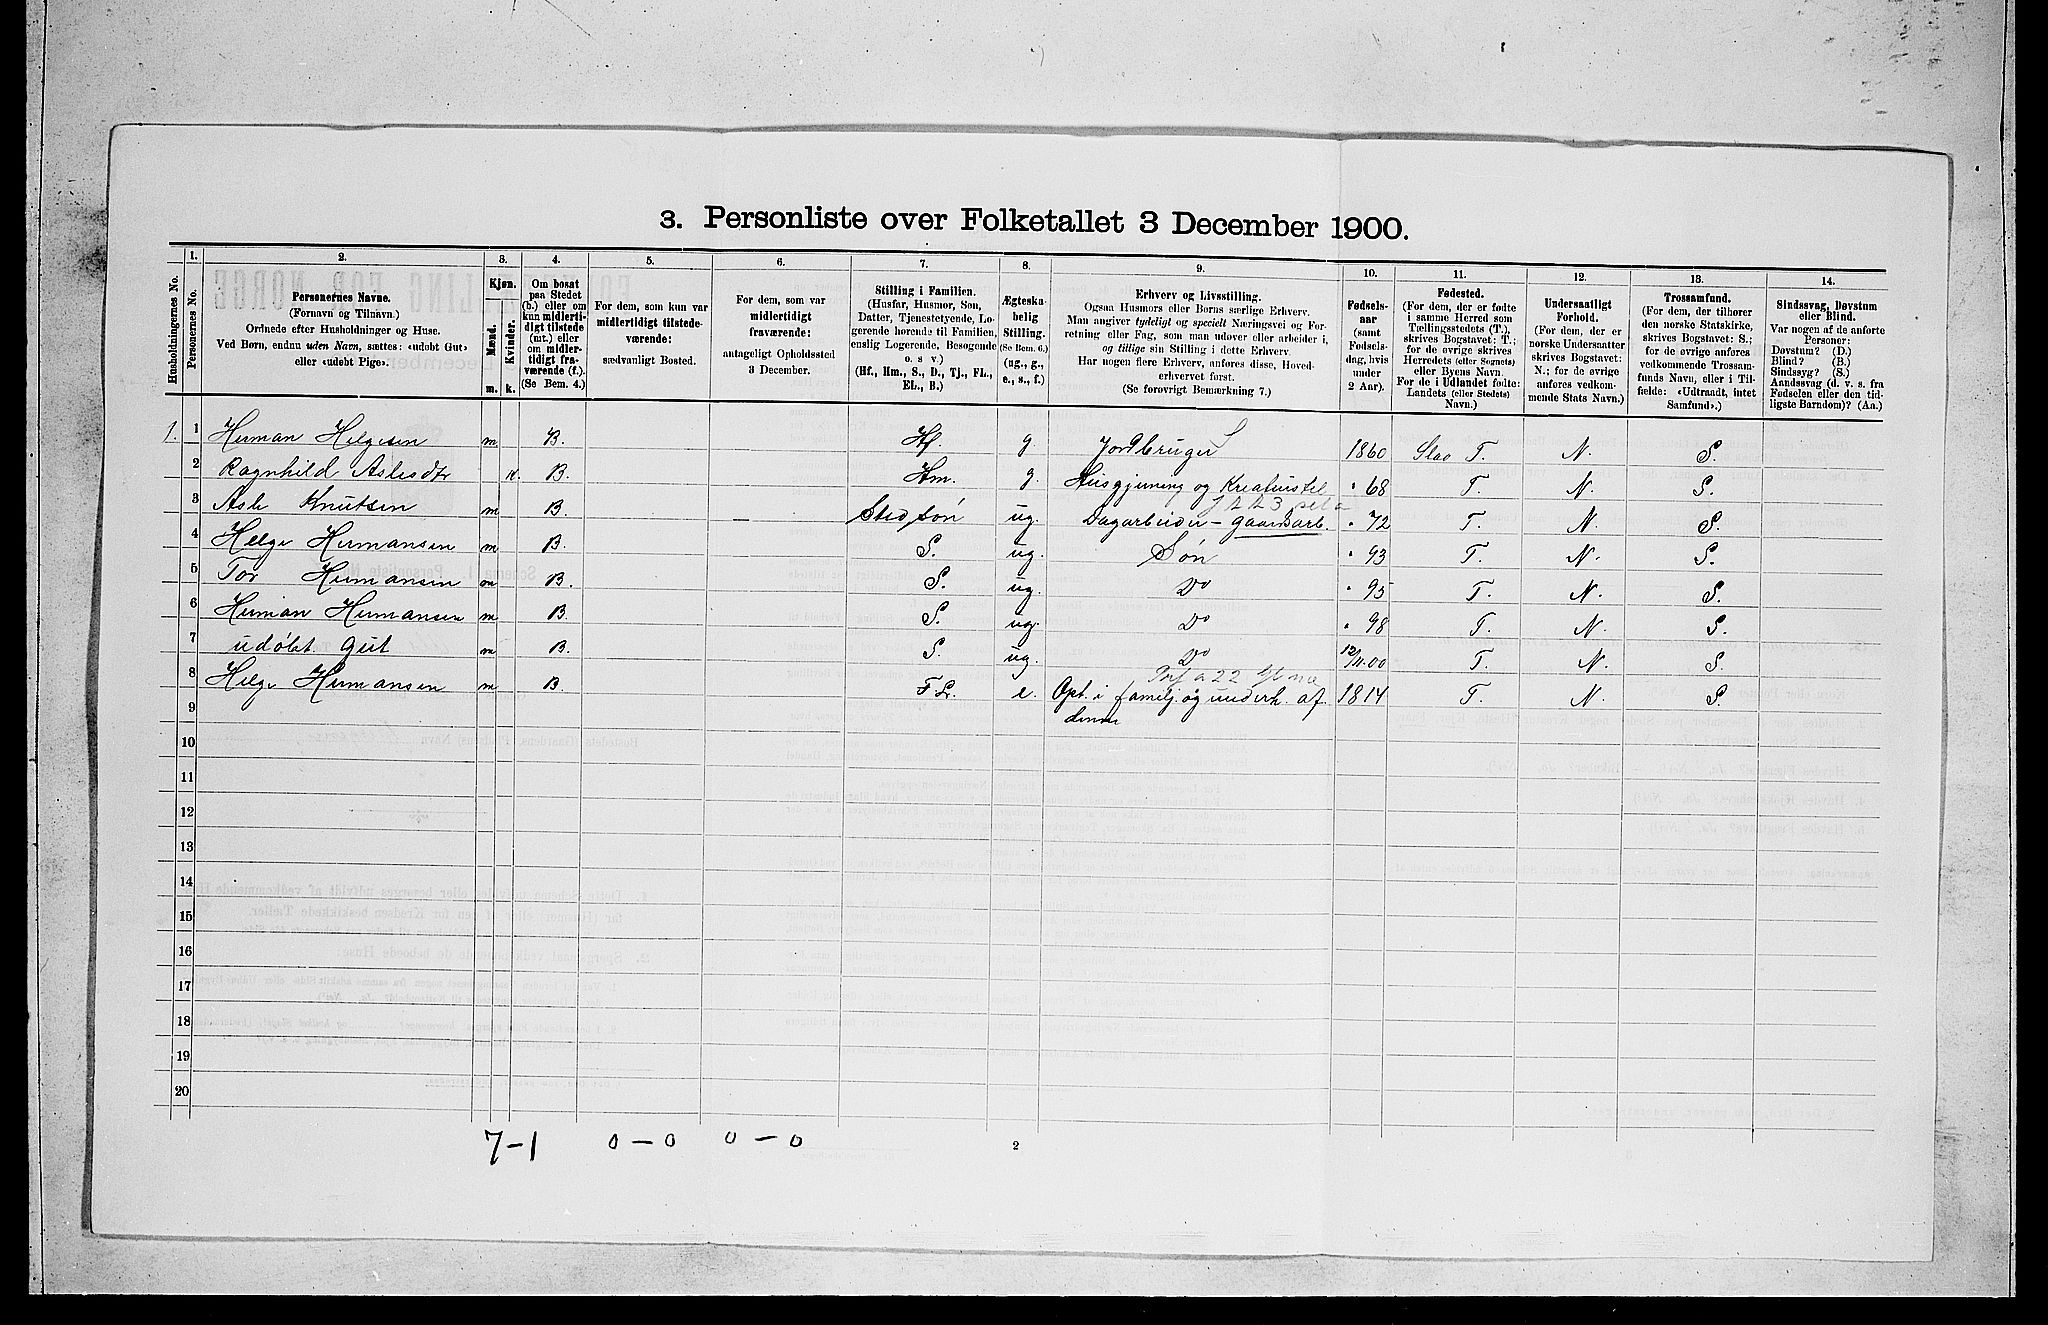 3. Personliste over Folketallet 3 December 1900.
Husholdningernes No.
1.
Personernes No.
2.
Personernes Navne.
(Fornavn og Tilnavn.)
Ordnede efter Husholdninger og Huse.
Ved Børn, endnu uden Navn, sættes: «udøbt Gut»
eller «udøbt Pige».
3.
Kjøn.
Mænd.
Kvinder.
m. k.
4.
Om bosat
paa Stedet
(b.) eller om
kun midlerti-
digt tilstede
(mt.) eller
om midler-
tidigt fra-
værende (f.).
(Se Bem. 4.)
5.
For dem, som kun var
midlertidigt tilstede-
værende:
sædvanligt Bosted.
6.
For dem, som var
midlertidigt
fraværende:
antageligt Opholdssted
3 December.
7.
Stilling i Familien.
(Husfar, Husmor, Søn,
Datter, Tjenestetyende, Lo-
gerende hørende til Familien,
enslig Logerende, Besøgende
o. s v.)
(Hf., Hm., S., D., Tj., FL.,
EL., B.)
8.
Ægteska-
belig
Stilling.
(Se Bem. 6.)
(ug., g.,
e., s., f.)
9.
Erhverv og Livsstilling.
Ogsaa Husmors eller Børns særlige Erhverv.
Man angiver tydeligt og specielt Næringsvei og For-
retning eller Fag, som man udøver eller arbeider i,
og tillige sin Stilling i dette Erhverv.
Har nogen flere Erhverv, anføres disse, Hoved-
erhvervet først.
(Se forøvrigt Bemærkning 7.)
10.
Fødsels-
aar
(samt
Fødsels-
dag, hvis
under
2 Aar).
11.
Fødested.
(For dem, der er fødte
i samme Herred som
Tællingsstedets (T.),
skrives Bogstavet: T.;
for de øvrige skrives
Herredets (eller Sognets)
eller Byens Navn.
For de i Udlandet fødte:
Landets (eller Stedets)
Navn.)
12.
Undersaatligt
Forhold.
(For dem, der er
norske Undersaatter
skrives Bogstavet:
N.; for de øvrige
anføres vedkom-
mende Stats Navn.)
13.
Trossamfund.
(For dem, der tilhører
den norske Statskirke,
skrives Bogstavet: S.;
for de øvrige anføres
vedkommende Trossam-
funds Navn, eller i Til-
fælde: «Udtraadt, intet
Samfund».)
14.
Sindssvag, Døvstum
eller Blind.
Var nogen af de anførte
Personer:
Døvstum? (D.)
Blind? (B.)
Sindssyg? (S.)
Aandssvag (d. v. s. fra
Fødselen eller den tid-
ligste Barndom)? (Aa.)
1. 1 Herman Helgesen m B. Hf. g Jordbruger S 1860 T. N. S.
2 Ragnhild Aslesdtr k. B. Hm. g. Husgjerning og Kreaturstel " 68 T. N. S.
3 Asle Knutsen m B. Stedsøn ug. Dagarbeider - gaardsarb. " 72 T. N. S.
4 Helge Hermansen m B. S. ug. Søn " 93 T. N. S.
5 Tor Hermansen m B. S. ug. Do " 95 T. N. S.
6 Herman Hermansen m B. S. ug. Do " 98 T. N. S.
7 udøbt Gut m B. S. ug. Do 12/11.00 T. N. S.
8 Helge Hermansen m B. FL. e. Opt. i familj. og underh. af 1814 T. N. S.
denne
9
10
11
12
13
14
15
16
17
18
19
20
7-1 0-0 0-0
2